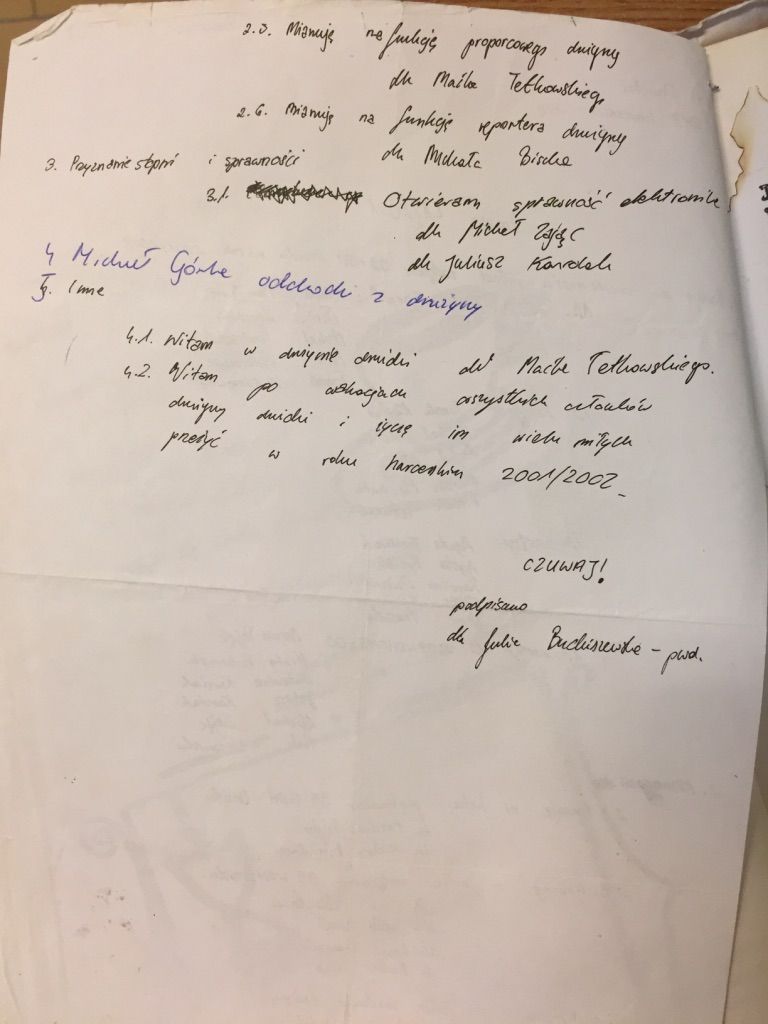 2.5. Mianuję na funkcję proporcowego drużyny
dh Maćka Tetkowskiego
2.6. Mianuję na funkcję reportera drużyny
dh Michała
3. Przyznanie stopni i sprawności
3.1. Otwieram sprawność elektronika
dh Michał Zając
dh Juliusz
4 Michał Górka odchodzi z drużyny
5. Inne
4.1. Witam w drużynie dh Maćka Tetkowskiego.
4.2. Witam po wakacjach wszystkich członków
drużyny i życzę im wielu miłych
przeżyć w roku harcerskim 2001/2002
CZUWAJ!
podpisano
dh Julia – pwd.